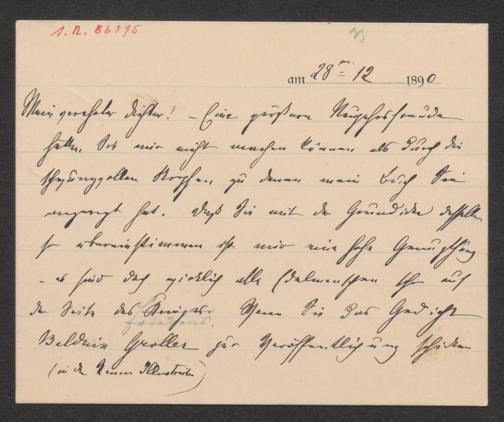 I.N. 56895
am 28ten 12 1890
Mein verehrter Dichter! – Eine größere Neujahrsfreude
hätten Sie mir nicht machen können als durch die
schwungvollen Strophen, zu denen mein Buch Sie
angeregt hat. Daß Sie mit der Grundidee desselben
so übereinstimmen ist mir eine hohe Genugthuung
– es sind doch wirklich alle Edelmenschen schon auf
der Seite des Krieges Wenn Sie das Gedicht
Friedens.
Balduin Groller zur Veröffentlichung schicken
(in der Neuen Illustrirten)